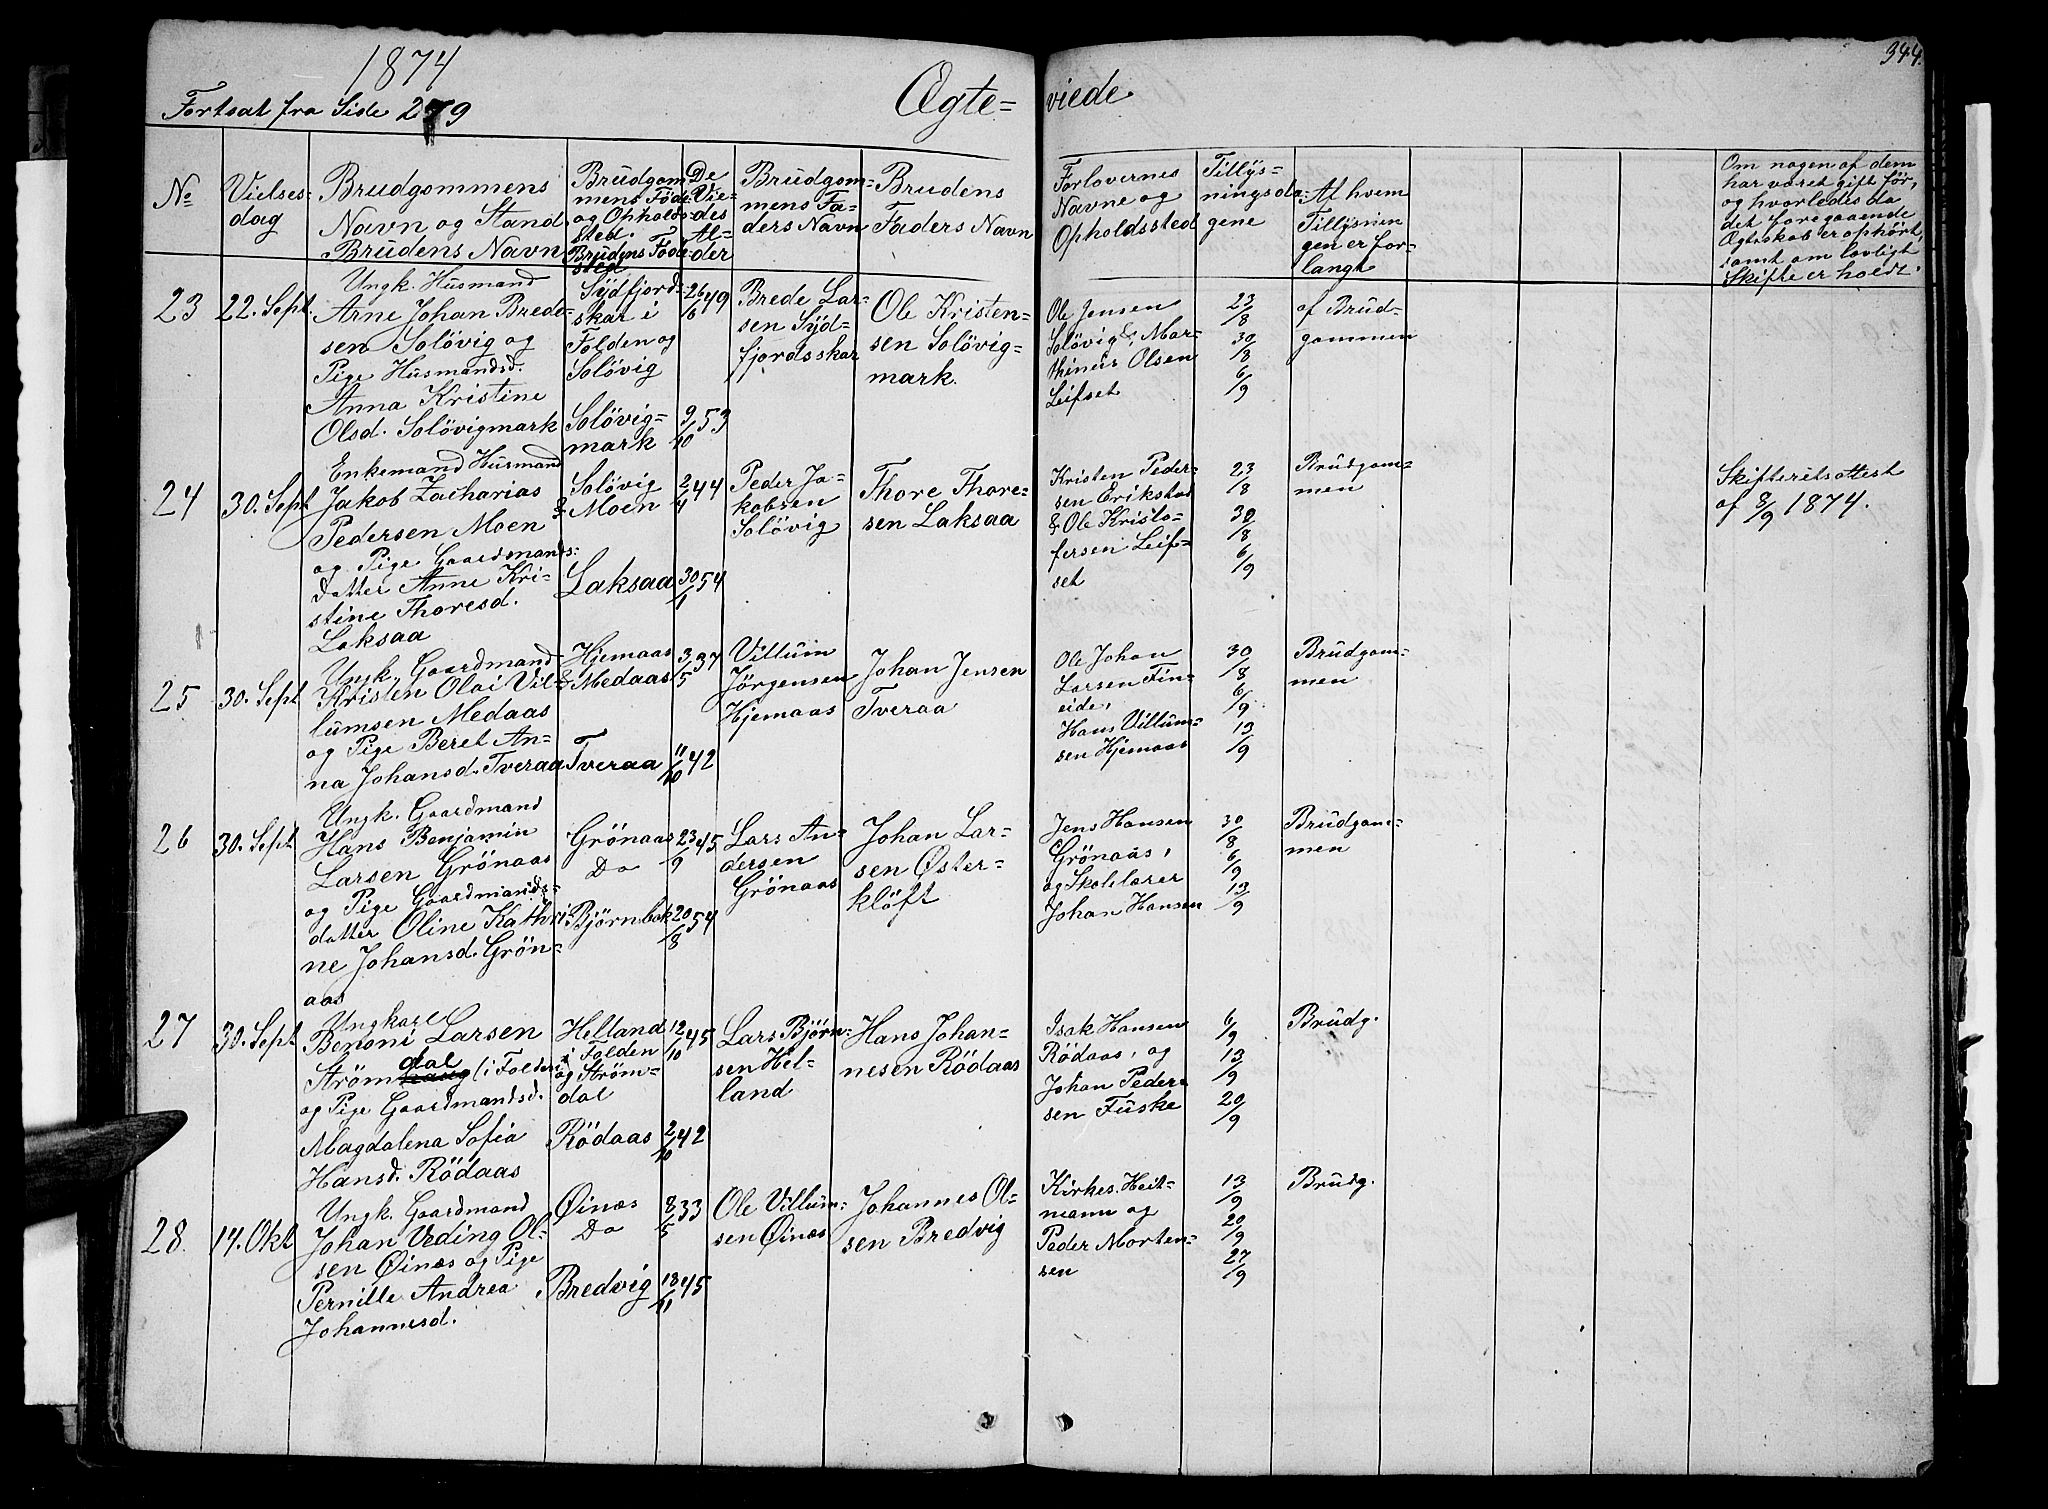 1874
Fortsat fra Side 279
Ægte=
viede
344.
No
Vielses-
dag
Brudgommens
Navn og Stand.
Brudens Navn
Brudgom-
mens Föde
og Opholds-
sted.
Brudens Föde-
sted
De
Vie-
des
Al-
der
Brudgom-
mens Fa-
ders Navn
Brudens
Faders Navn
Forlovernes
Navne og
Opholdssted
Tillys-
ningsda-
gene
Af hvem
Tillysnin
gen er for-
langt
Om nogen af dem
har været gift før,
og hvorledes da
det foregaaende
Ægteskab er ophört,
samt om lovligt
Skifte er holdt.
23
22. Sept.
Ungk. Husmand
Arne Johan Brede-
sen Solövig og
Pige Husmandsd.
Anna Kristine
Olsd. Solövigmark
Sydfjord-
skar i
Folden og
Solövig
Solövig=
mark
26/6 49
9/10 53
Brede Lar-
sen Syd-
fjordsskar
Ole Kristen-
sen Solövig=
mark.
Ole Jensen
Solövig &, Mar-
thinus Olsen
Leifset
23/8
30/8
6/9
af Brud-
gommen
24
30. Sept
Enkemand Husmand
Jakob Zacharias
Pedersen Moen
og Pige Gaardmands-
datter Anne Kri-
stine Thoresd.
Laksaa
Solövig
& Moen
Laksaa
2/4 44
30/1 54
Peder Ja-
kobsen
Solövig
Thore Thore-
sen Laksaa
Kristen Peder-
sen Erikstad
& Ole Kristo-
fersen Leif-
set
23/8
30/8
6/9
Brudgom-
men
Skifteretsattest
af 8/9 1874.
25
30. Sept
Ungk. Gaardmand
Kristen Olai Vil-
lumsen Medaas
og Pige Beret An-
na Johansd. Tveraa
Hjemaas
& Medaas
Tveraa
3/5 37
11/10 42
Villum
Jörgensen
Hjemaas
Johan Jensen
Tveraa
Ole Johan
Larsen Fin-
eide,
Hans Villum-
sen Hjemaas
30/8
6/9
13/9
Brudgom-
men
26
30. Sept
Ungk. Gaardmand
Hans Benjamin
Larsen Grönaas
og Pige Gaardmands-
datter Oline Kathri
ne Johansd. Grön-
aas
Grönaas
Do
Björnbak
23/9 45
20/8 54
Lars An-
dersen
Grönaas
Johan Lar-
sen Øster-
klöft
Jens Hansen
Grönaas,
og Skolelærer
Johan Hansen
30/8
6/9
13/9
Brudgom-
men
27
30. Sept
Ungkarl
Benoni Larsen
dal
Ström (i Folden
og Pige Gaardmandsd.
Magdalena Sofia
Hansd. Rödaas
Helland
i Folden
og Ström-
dal
Rödaas
12/10 45
2/10 42
Lars Björn-
sen Hel-
land
Hans Johan-
nesen Rödaas
Isak Hansen
Rödaas, og
Johan Peder-
sen Fuske
6/9
13/9
20/9
Brudg.
28.
14. Okt
Ungk. Gaardmand
Johan Veding Ol-
sen Øinæs og Pige
Pernille Andrea
Johannesd.
Øinæs
Do
Bredvig
8/5 33
18/11 45
Ole Villum-
sen Øinæs
Johannes Ol-
sen Bredvig
Kirkes. Heit-
mann og
Peder Morten-
sen
13/9
20/9
27/9
Brudg.